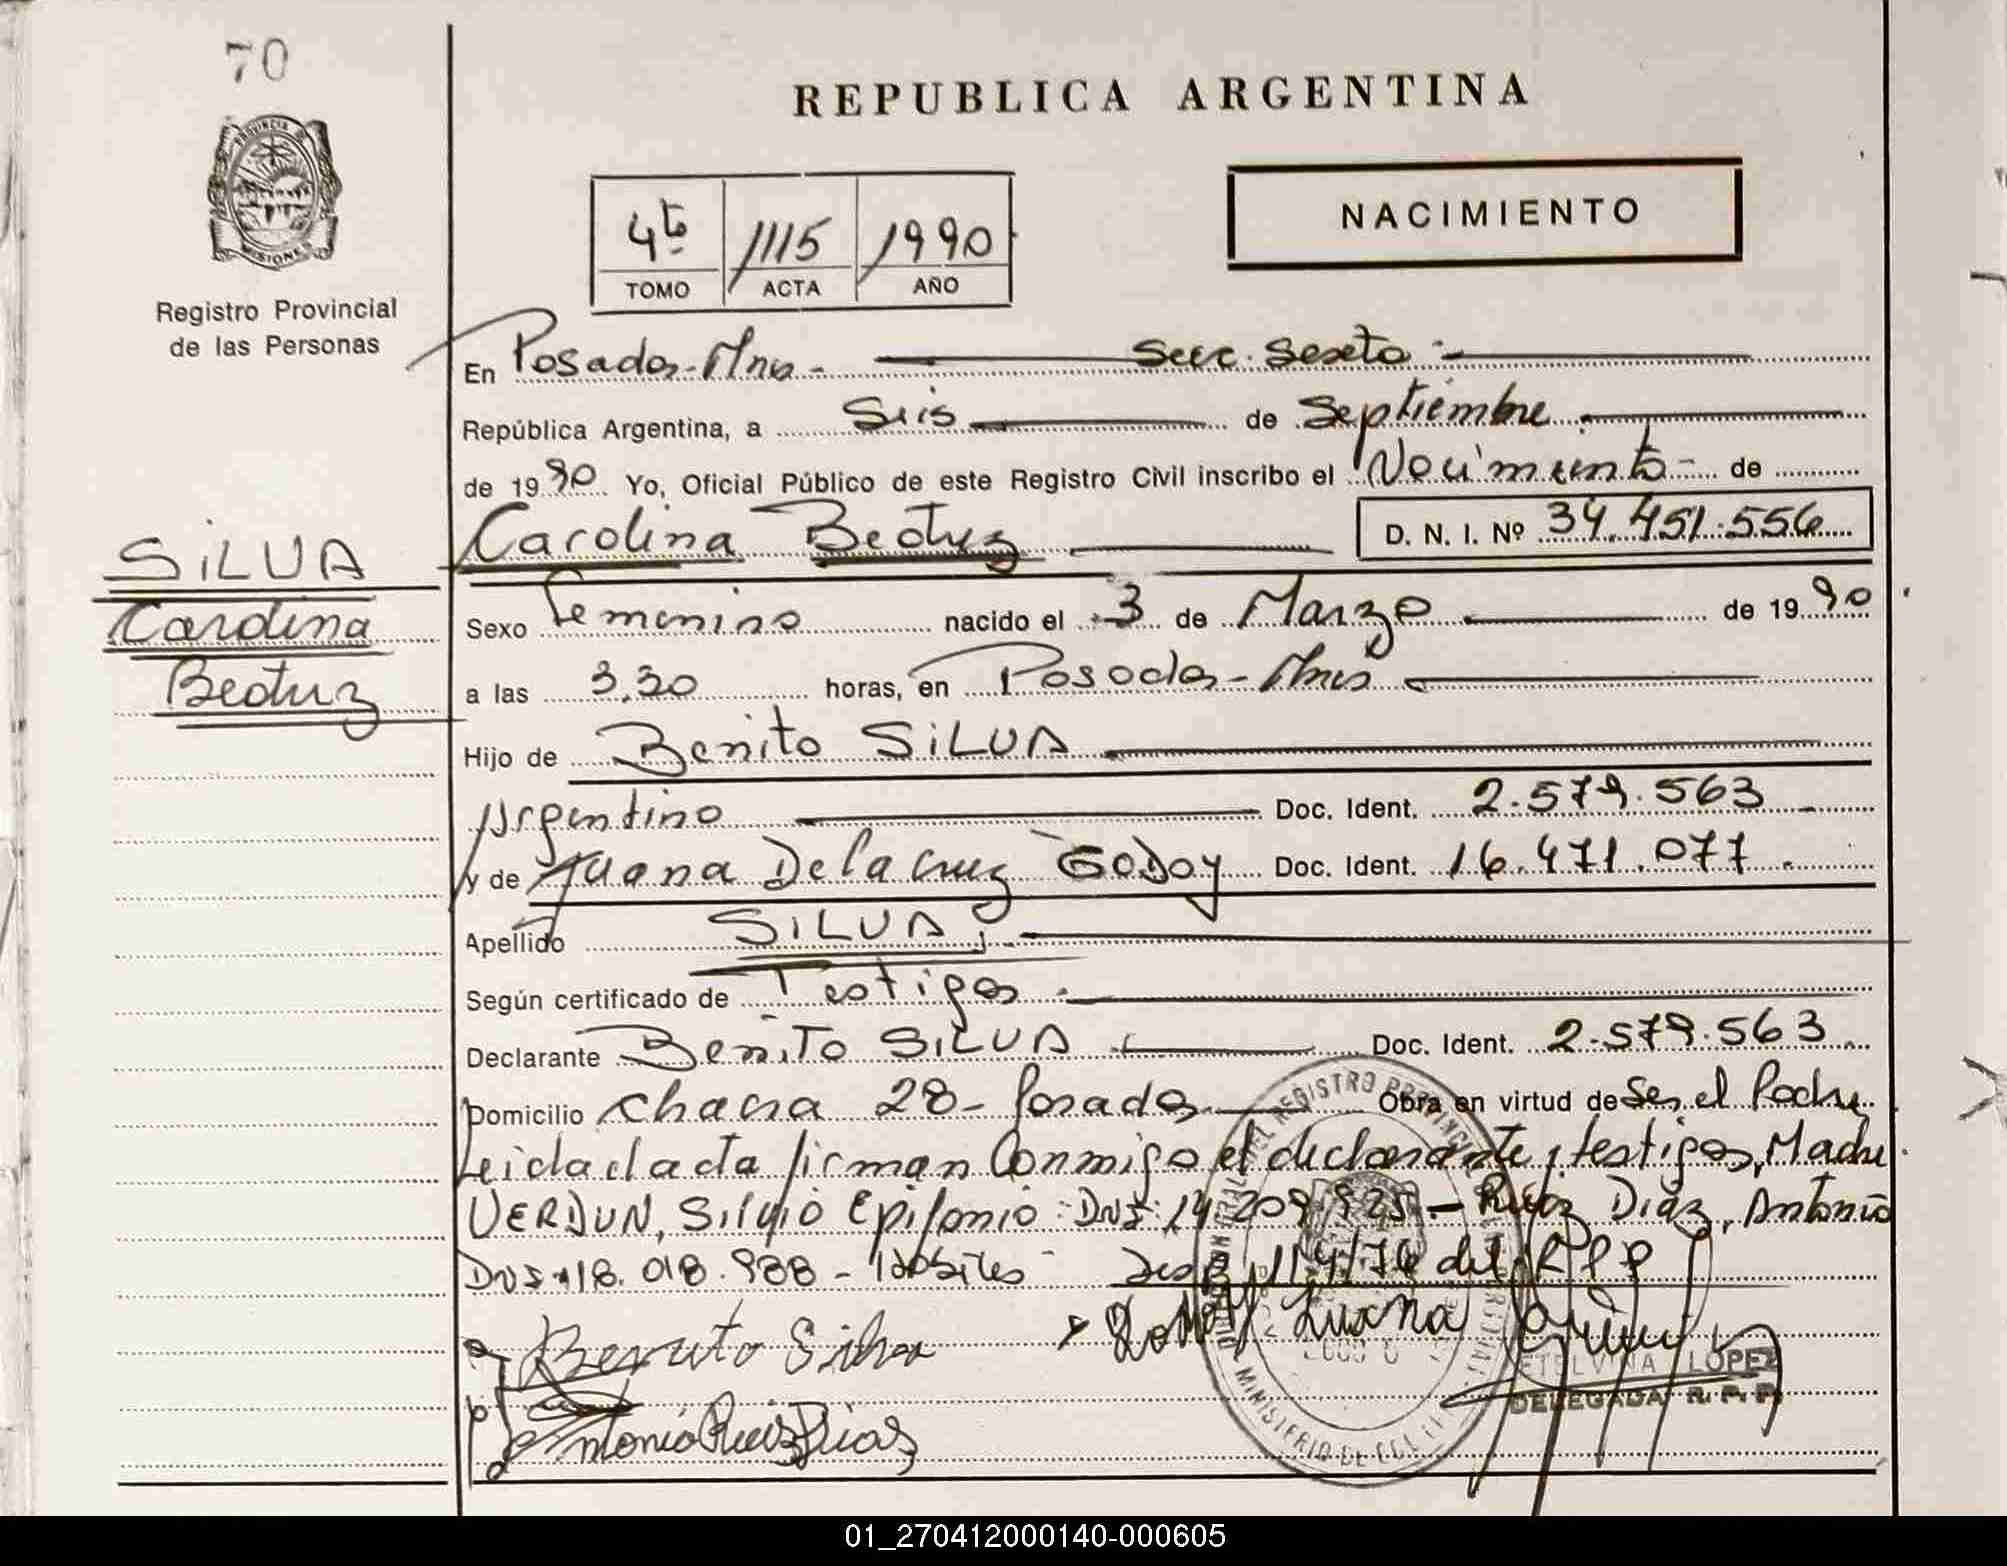 70
REPUBLICA ARGENTINA
PROVINCIA DE
MISIONES
Registro Provincial
de las Personas
4to 1115 1990
TOMO ACTA AÑO
NACIMIENTO
En Posadas-Mnes- Secc. Sexta -
República Argentina, a Seis de Septiembre
de 1990 Yo, Oficial Público de este Registro Civil inscribo el Nacimiento - de
Carolina Beatriz D. N. I. Nº 34.451.556
SILVA
Carolina
Beatriz
Sexo Femenino nacido el 3 de Marzo de 1990
a las 3,30 horas, en Posadas-Mnes
Hijo de Benito SILVA
Argentino Doc. Ident. 2.579.563
y de Juana De la Cruz GODOY Doc. Ident. 16.471.077
Apellido SILVA
Según certificado de Testigos
Declarante Benito SILVA Doc. Ident. 2.579.563
Domicilio Chacra 28- Posadas Obra en virtud de Ser el Padre
Leida el acta firman conmigo el declarante, testigos, Madre
VERDUN, Silvio Epifanio: DNI: 14.209.925 - Ruiz Diaz, Antonio
DNI 18.018.988 - Habiles 114/76 del RPP
Benito Silva
Antonio Ruiz Diaz
ETELVINA LOPEZ
DELEGADA R.P.P.
01_270412000140-000605